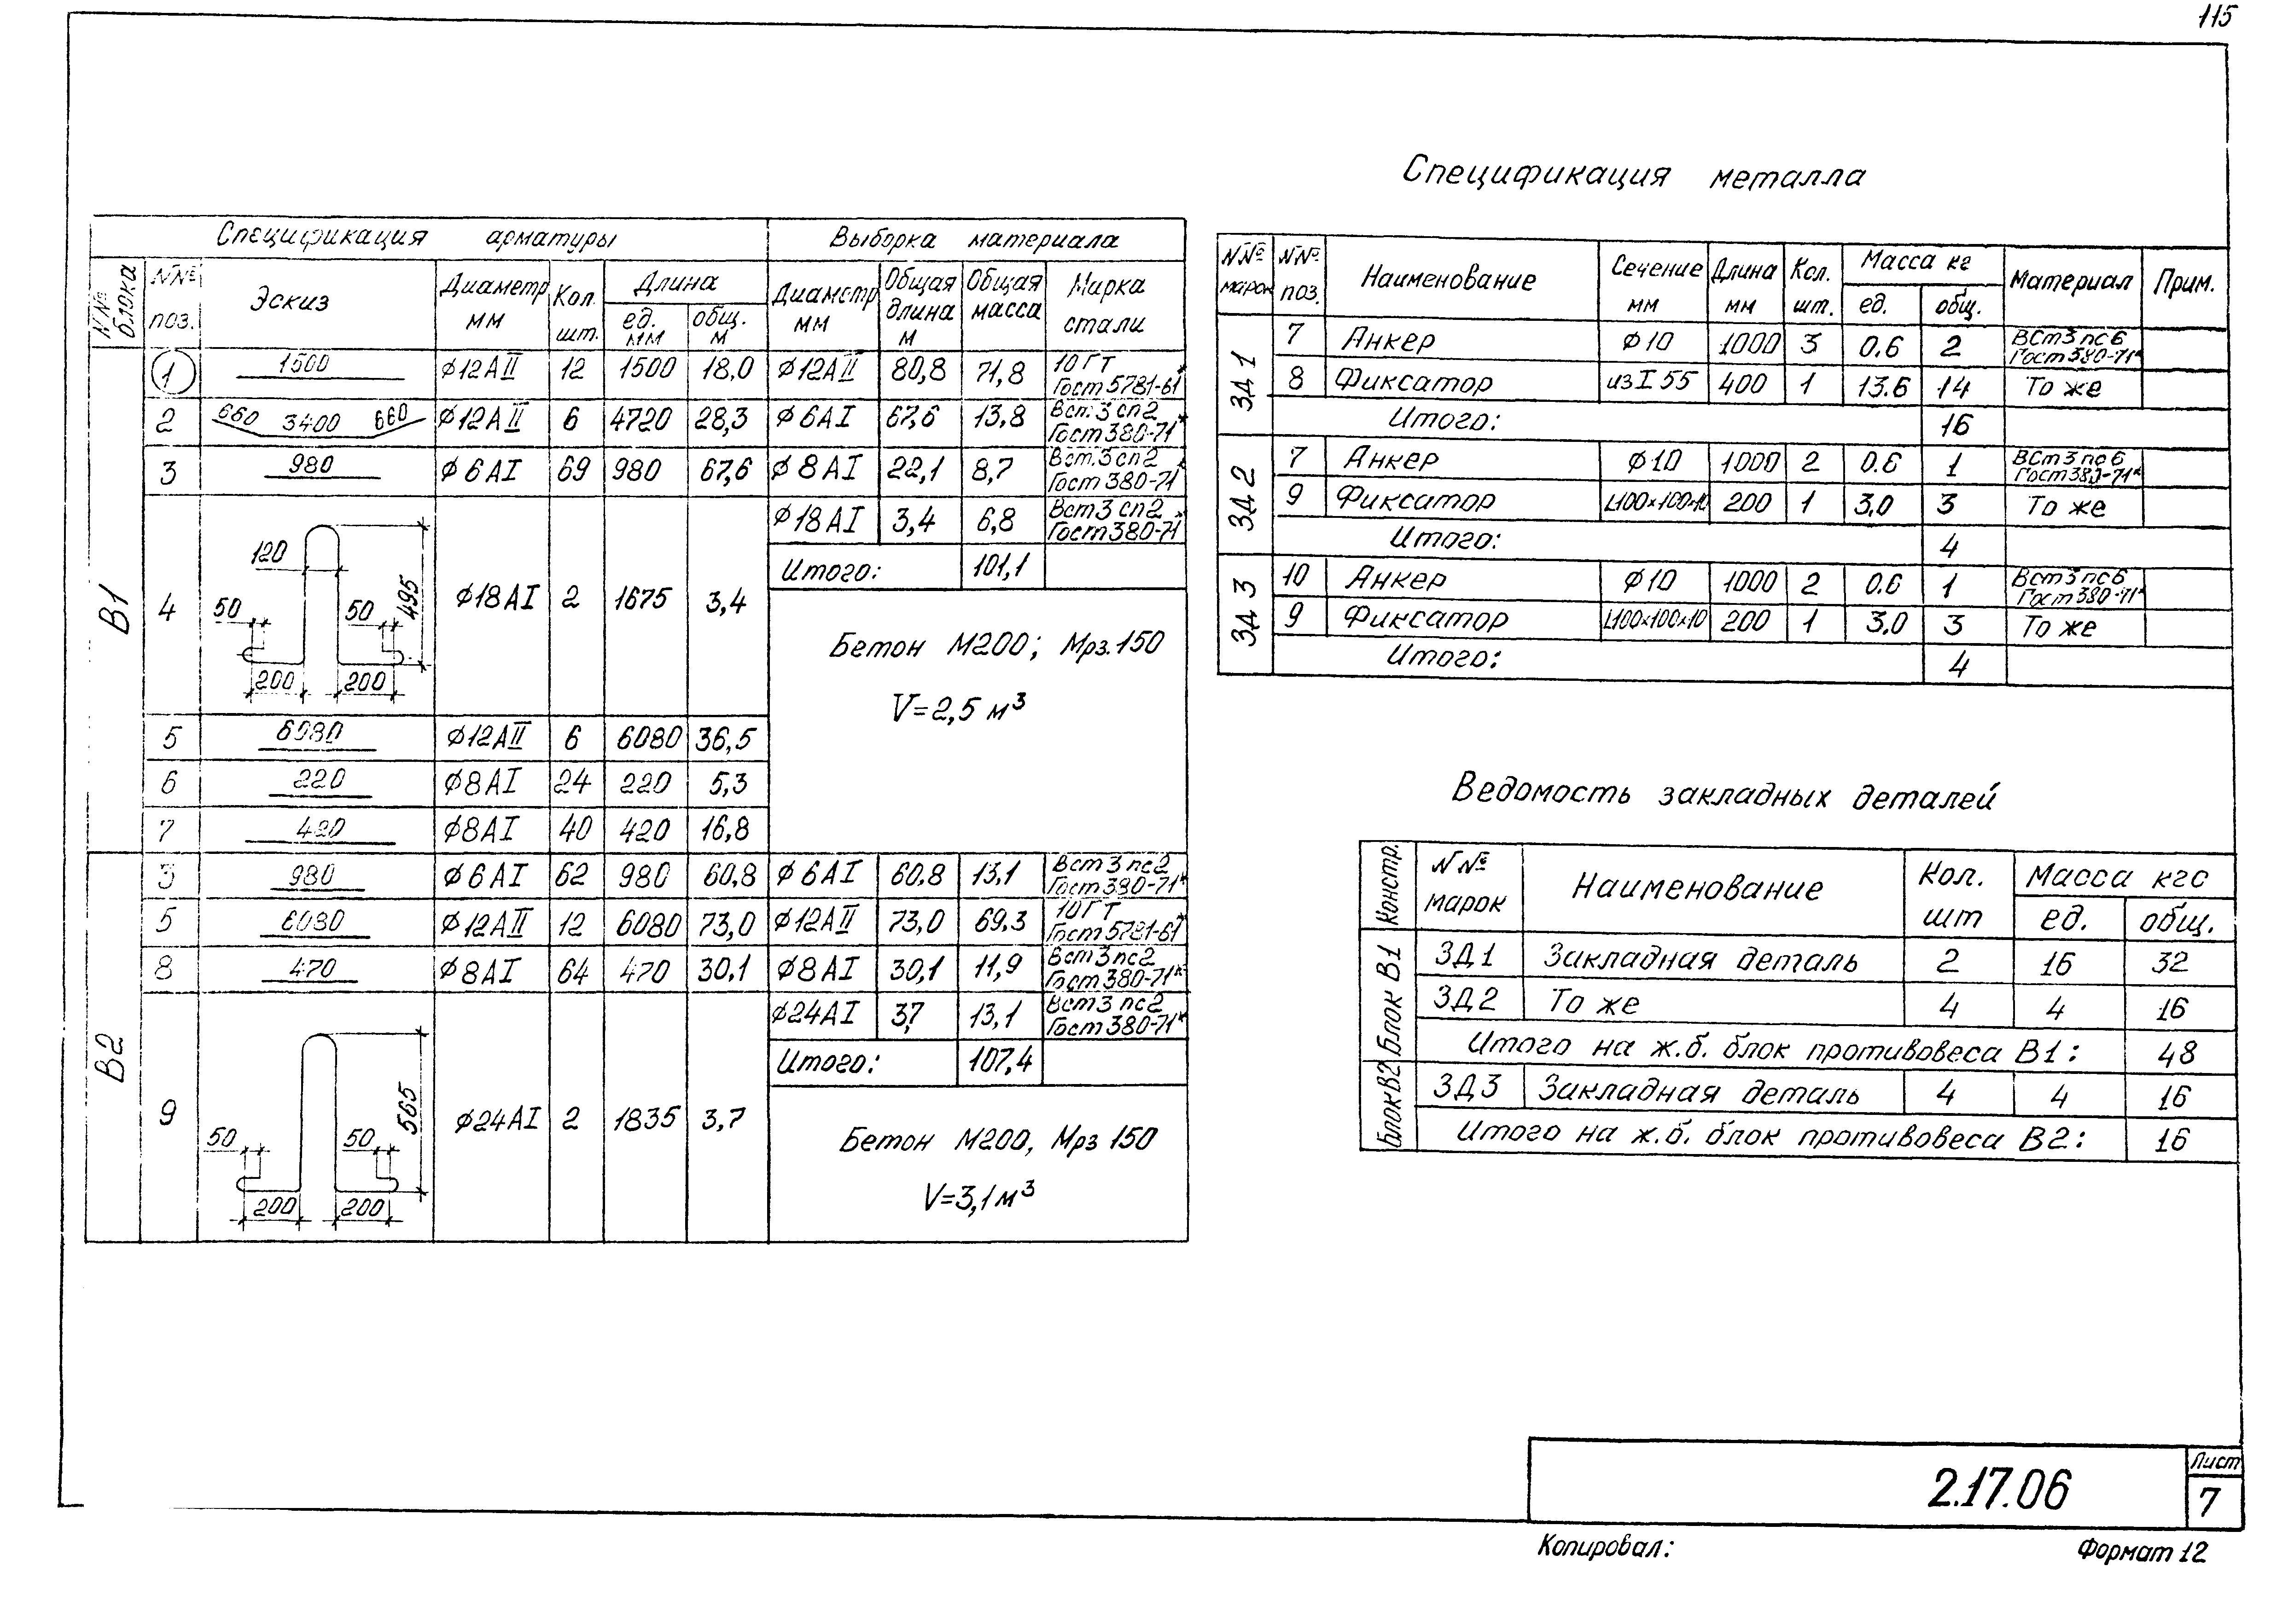 115
Спецификация арматуры
Выборка материала
NN№ блока
NN№ поз.
Эскиз
Диаметр мм
Кол. шт.
Длина
ед. мм
общ. м
Диаметр мм
Общая длина м
Общая масса
Марка стали
В1
1 1500 ϕ12АII 12 1500 18,0 ϕ12АII 80,8 71,8 10ГТ Гост 5781-61*
2 660 3400 660 ϕ12АII 6 4720 28,3 ϕ6АI 67,6 13,8 Вст.3сп2 Гост 380-71*
3 980 ϕ6АI 69 980 67,6 ϕ8АI 22,1 8,7 Вст.3сп2 Гост 380-71*
ϕ18АI 3,4 6,8 Вст3сп2 Гост 380-71*
Итого: 101,1
4 120 50 50 495 200 200 ϕ18АI 2 1675 3,4
Бетон М200; Мрз.150
V=2,5 м³
5 6080 ϕ12АII 6 6080 36,5
6 220 ϕ8АI 24 220 5,3
7 420 ϕ8АI 40 420 16,8
В2
3 980 ϕ6АI 62 980 60,8 ϕ6АI 60,8 13,1 Вст3пс2 Гост 380-71*
5 6080 ϕ12АII 12 6080 73,0 ϕ12АII 73,0 69,3 10ГТ Гост 5781-61*
8 470 ϕ8АI 64 470 30,1 ϕ8АI 30,1 11,9 Вст3пс2 Гост 380-71*
ϕ24АI 3,7 13,1 Вст3пс2 Гост 380-71*
Итого: 107,4
9 50 50 565 200 200 ϕ24АI 2 1835 3,7
Бетон М200, Мрз 150
V=3,1м³
Спецификация металла
NN№ марок
NN№ поз.
Наименование
Сечение мм
Длина мм
Кол. шт.
Масса кг
ед.
общ.
Материал
Прим.
ЗД1
7 Анкер ϕ10 1000 3 0.6 2 ВСт3пс6 Гост 380-71*
8 Фиксатор из I 55 400 1 13.6 14 То же
Итого: 16
ЗД2
7 Анкер ϕ10 1000 2 0.6 1 ВСт3пс6 Гост 380-71*
9 Фиксатор L100×100×10 200 1 3,0 3 То же
Итого: 4
ЗД3
10 Анкер ϕ10 1000 2 0.6 1 Вст3пс6 Гост 380-71*
9 Фиксатор L100×100×10 200 1 3,0 3 То же
Итого: 4
Ведомость закладных деталей
Констр.
NN№ марок
Наименование
Кол. шт
Масса кгс
ед.
общ.
Блок В1
ЗД1 Закладная деталь 2 16 32
ЗД2 То же 4 4 16
Итого на ж.б. блок противовеса В1: 48
Блок В2
ЗД3 Закладная деталь 4 4 16
Итого на ж.б. блок противовеса В2: 16
2.17.06
Лист
7
Копировал:
Формат 12